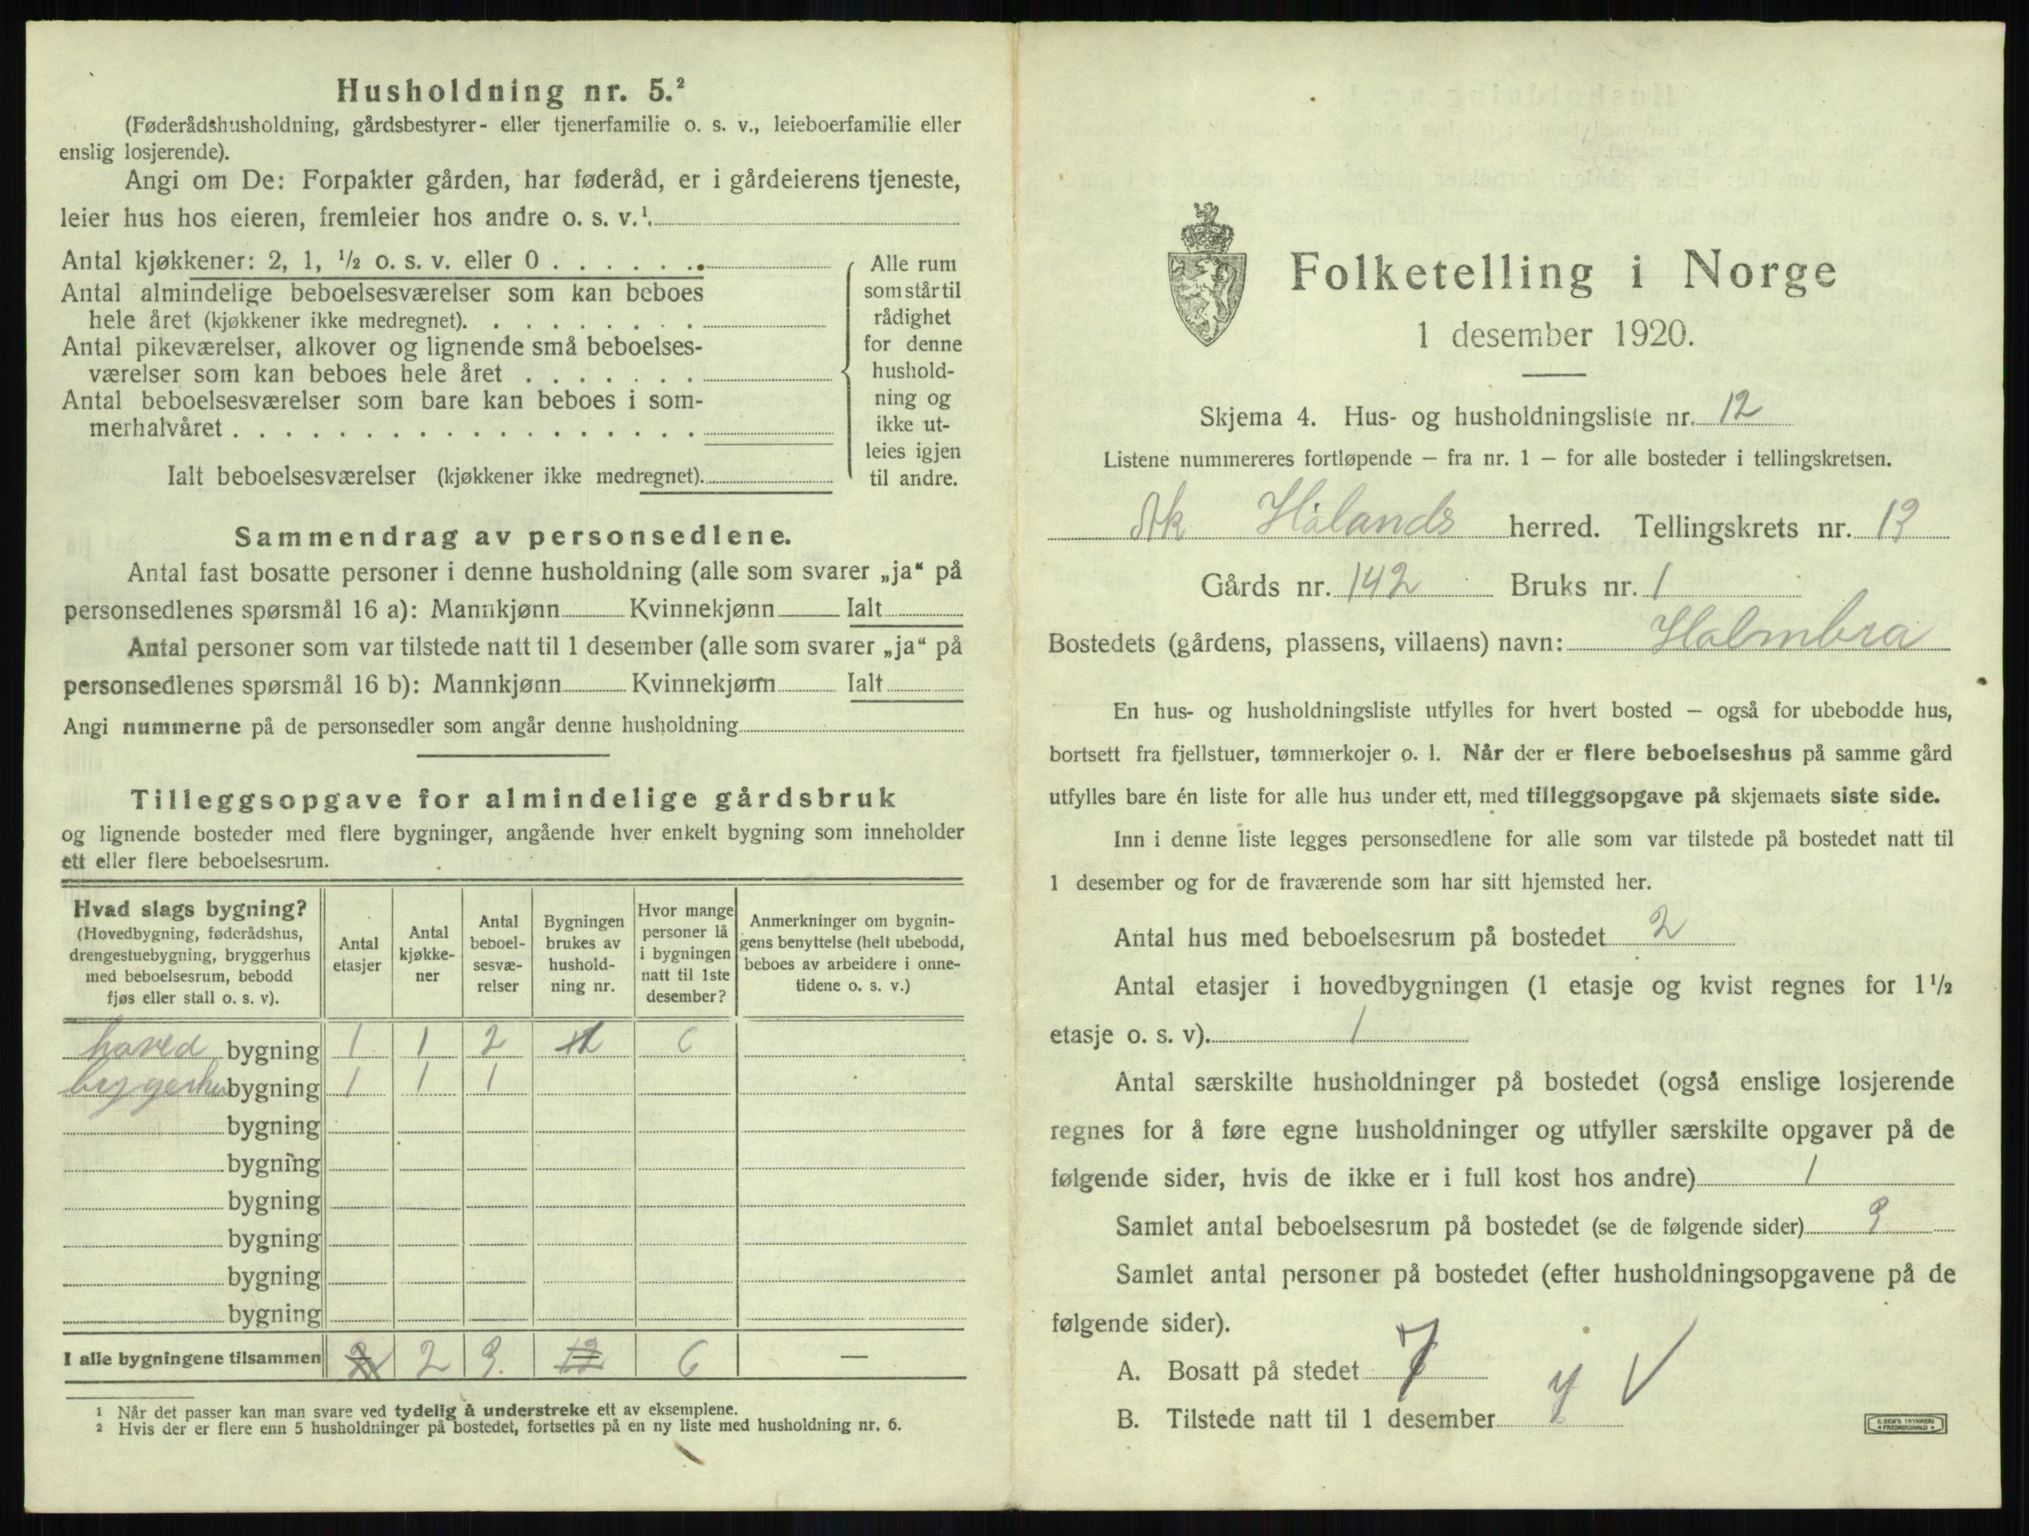 Husholdning nr. 5.²
(Føderådshusholdning, gårdsbestyrer- eller tjenerfamilie o. s. v., leieboerfamilie eller
enslig losjerende).
Angi om De: Forpakter gården, har føderåd, er i gårdeierens tjeneste,
leier hus hos eieren, fremleier hos andre o. s. v.¹
Antal kjøkkener: 2, 1, ½ o. s. v. eller 0 . . . . . .
Antal almindelige beboelsesværelser som kan beboes
hele året (kjøkkener ikke medregnet). . . . . . . . .
Antal pikeværelser, alkover og lignende små beboelses-
værelser som kan beboes hele året . . . . . . .
Antal beboelsesværelser som bare kan beboes i som-
merhalvåret . . . . . . . . . . . . . . . . . .
Ialt beboelsesværelser (kjøkkener ikke medregnet).
Alle rum
som står til
rådighet
for denne
hushold-
ning og
ikke ut-
leies igjen
til andre.
Sammendrag av personsedlene.
Antal fast bosatte personer i denne husholdning (alle som svarer „ja“ på
personsedlenes spørsmål 16 a): Mannkjønn Kvinnekjønn Ialt
Antal personer som var tilstede natt til 1 desember (alle som svarer „ja“ på
personsedlenes spørsmål 16 b): Mannkjønn Kvinnekjønn Ialt
Angi nummerne på de personsedler som angår denne husholdning
Tilleggsopgave for almindelige gårdsbruk
og lignende bosteder med flere bygninger, angående hver enkelt bygning som inneholder
ett eller flere beboelsesrum.
Hvad slags bygning?
(Hovedbygning, føderådshus,
drengestuebygning, bryggerhus
med beboelsesrum, bebodd
fjøs eller stall o. s. v).
Antal
etasjer
Antal
kjøkke-
ner
Antal
beboel-
sesvæ-
relser
Bygningen
brukes av
hushold-
ning nr.
Hvor mange
personer lå
i bygningen
natt til 1ste
desember?
Anmerkninger om bygnin-
gens benyttelse (helt ubebodd,
beboes av arbeidere i onne-
tidene o. s. v.)
hoved bygning 1 1 2 6
bryggerhus bygning 1 1 1
bygning
bygning
bygning
bygning
bygning
bygning
I alle bygningene tilsammen 2 3 12 6 —
¹ Når det passer kan man svare ved tydelig å understreke ett av eksemplene.
² Hvis der er flere enn 5 husholdninger på bostedet, fortsettes på en ny liste med husholdning nr. 6.
Folketelling i Norge
1 desember 1920.
Skjema 4. Hus- og husholdningsliste nr. 12
Listene nummereres fortløpende – fra nr. 1 – for alle bosteder i tellingskretsen.
Ak Hølands herred. Tellingskrets nr. 13
Gårds nr. 142 Bruks nr. 1
Bostedets (gårdens, plassens, villaens) navn: Holmbra
En hus- og husholdningsliste utfylles for hvert bosted – også for ubebodde hus,
bortsett fra fjellstuer, tømmerkojer o. l. Når der er flere beboelseshus på samme gård
utfylles bare én liste for alle hus under ett, med tilleggsopgave på skjemaets siste side.
Inn i denne liste legges personsedlene for alle som var tilstede på bostedet natt til
1 desember og for de fraværende som har sitt hjemsted her.
Antal hus med beboelsesrum på bostedet 2
Antal etasjer i hovedbygningen (1 etasje og kvist regnes for 1½
etasje o. s. v). 1
Antal særskilte husholdninger på bostedet (også enslige losjerende
regnes for å føre egne husholdninger og utfyller særskilte opgaver på de
følgende sider, hvis de ikke er i full kost hos andre) 1
Samlet antal beboelsesrum på bostedet (se de følgende sider) 3
Samlet antal personer på bostedet (efter husholdningsopgavene på de
følgende sider).
A. Bosatt på stedet 7
B. Tilstede natt til 1 desember y
E. SEM'S TRYKKERI
FREDRIKSHALD